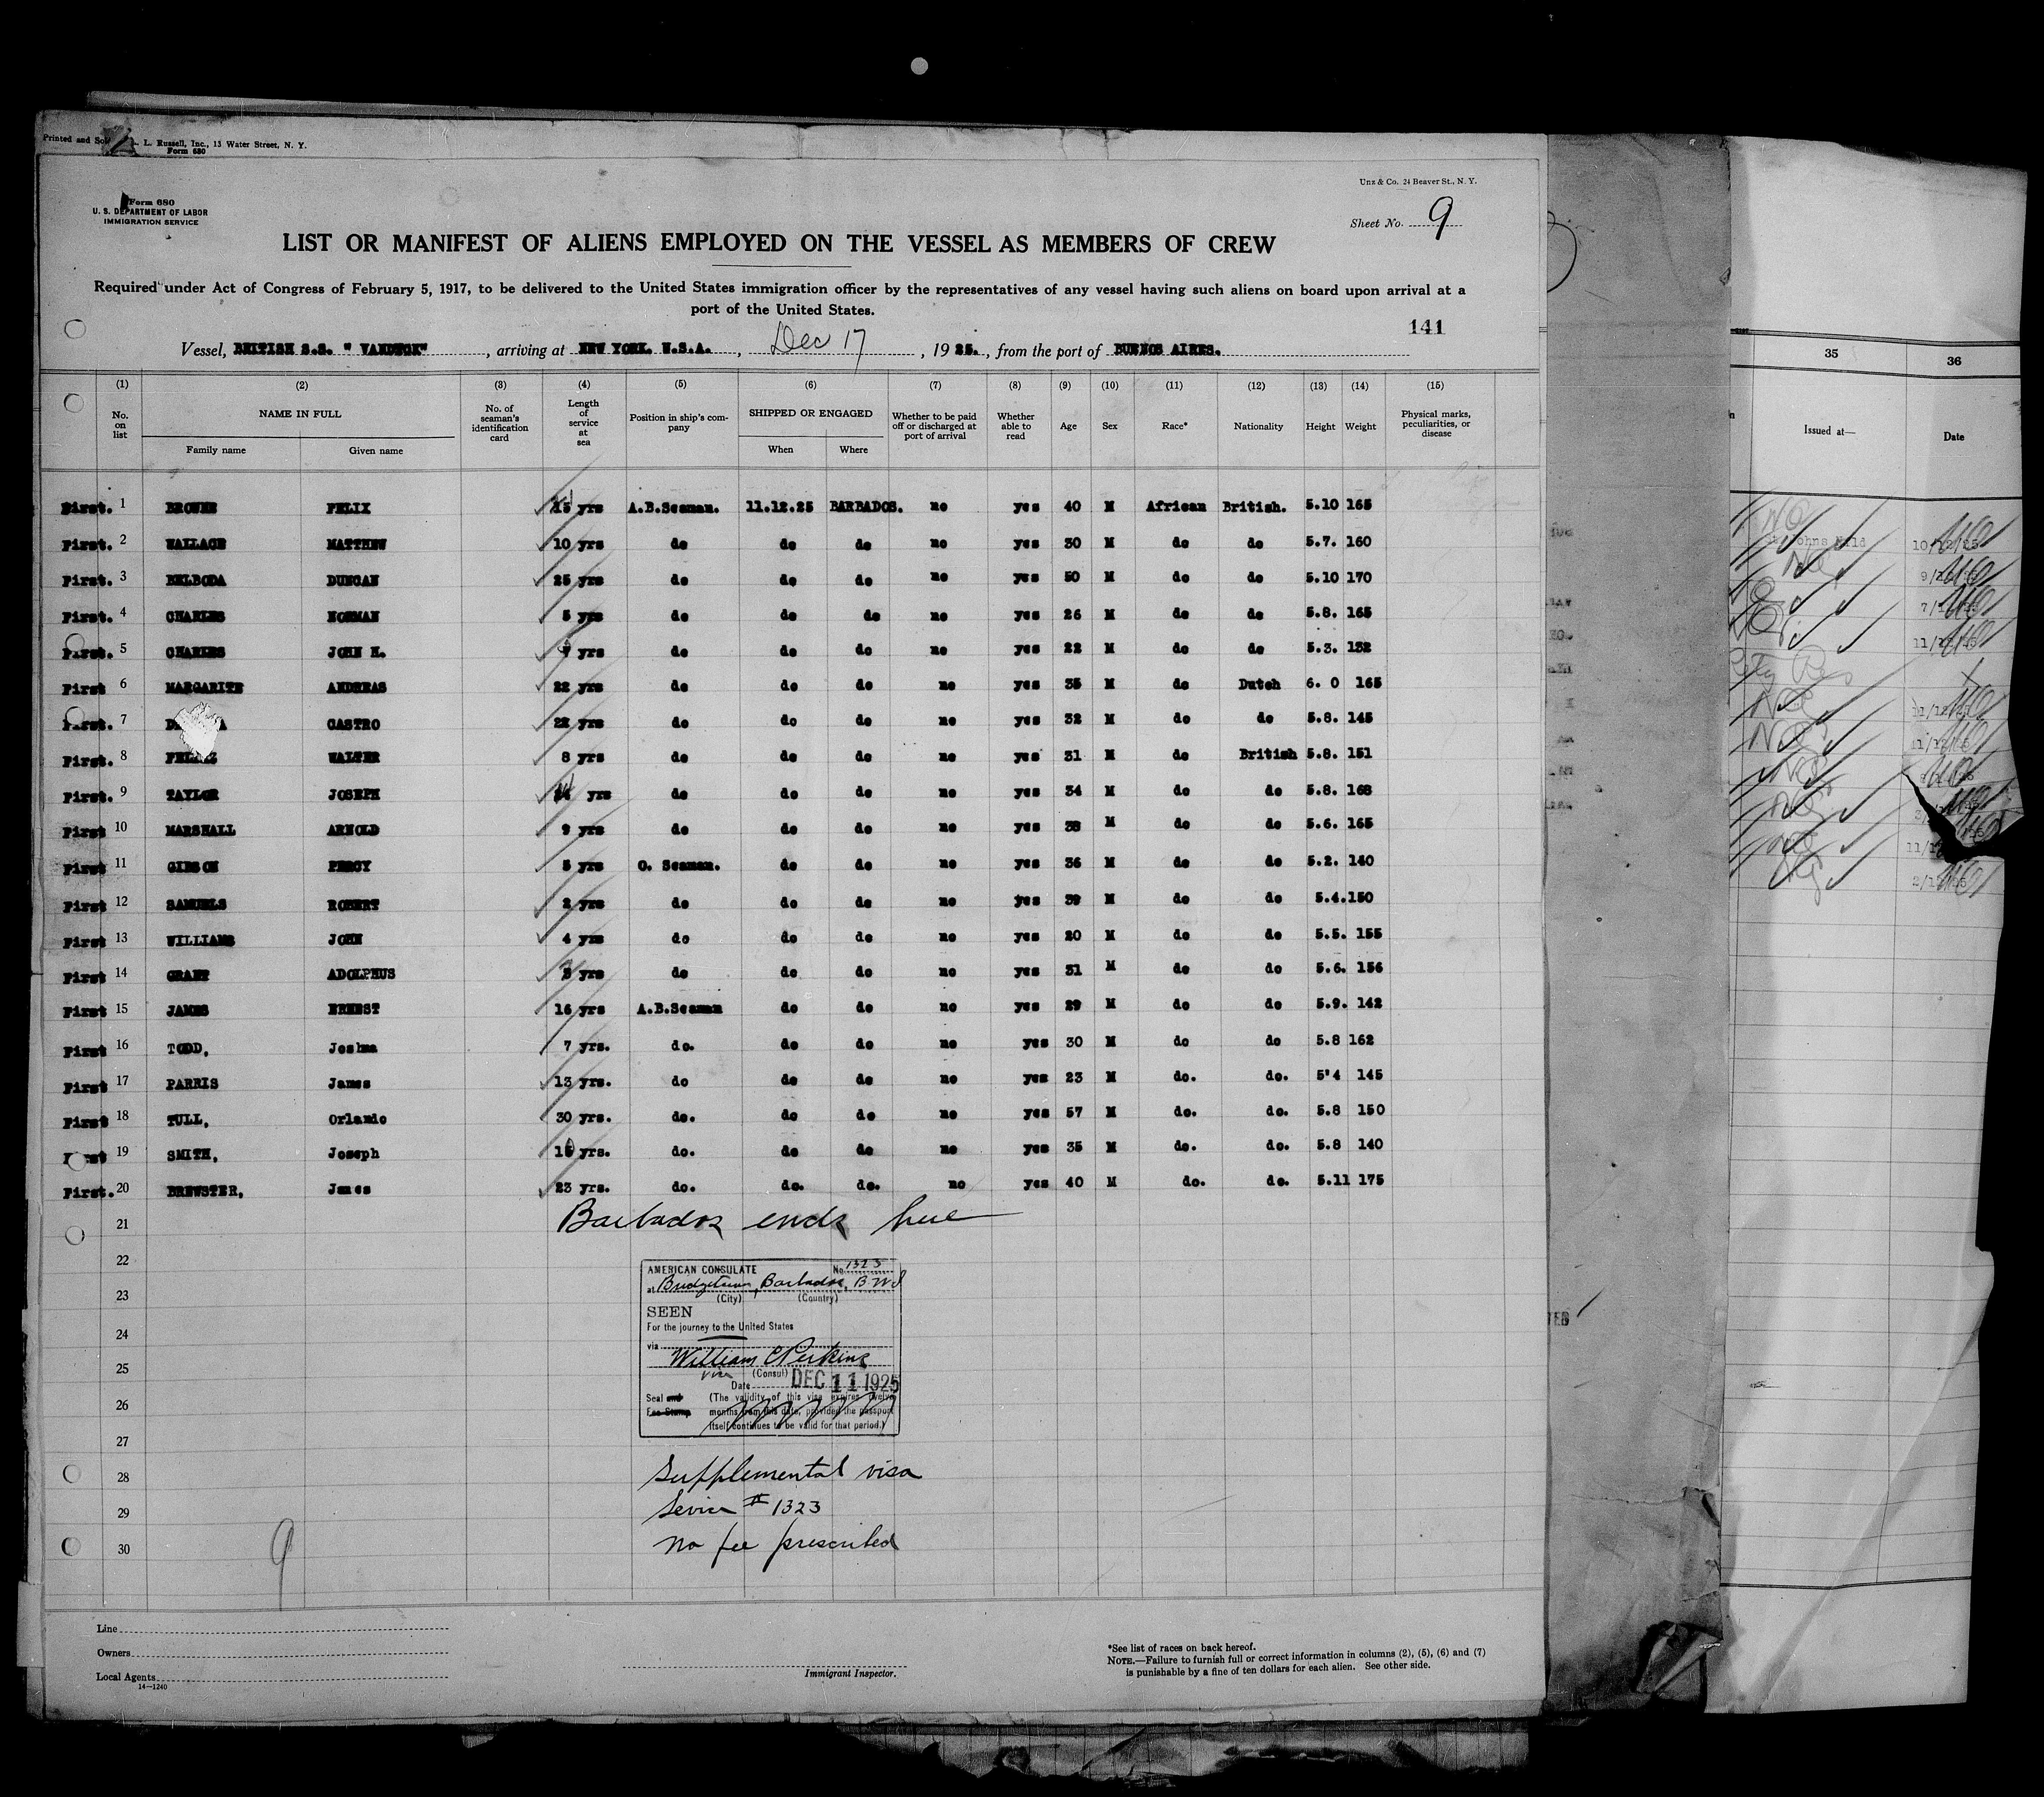 L. Russell, Inc., 13 Water Street, N. Y.
Form 680
Unz & Co. 24 Beaver St., N. Y.
Form 680
U. S. DEPARTMENT OF LABOR
IMMIGRATION SERVICE
Sheet No. 9
LIST OR MANIFEST OF ALIENS EMPLOYED ON THE VESSEL AS MEMBERS OF CREW
Required under Act of Congress of February 5, 1917, to be delivered to the United States immigration officer by the representatives of any vessel having such aliens on board upon arrival at a
port of the United States.
141
Vessel, BRITISH S.S. " VANDYCK" , arriving at NEW YORK. U.S.A. , Dec 17 , 1925. , from the port of BUENOS AIRES.
(1) (2) (3) (4) (5) (6) (7) (8) (9) (10) (11) (12) (13) (14) (15)
No. on list NAME IN FULL Family name Given name No. of seaman's identification card Length of service at sea Position in ship's company SHIPPED OR ENGAGED When Where Whether to be paid off or discharged at port of arrival Whether able to read Age Sex Race* Nationality Height Weight Physical marks, peculiarities, or disease
35 36
Issued at— Date
First. 1 BROWNE FELIX 15 yrs A.B.Seaman. 11.12.25 BARBADOS. no yes 40 M African British. 5.10 165
First. 2 WALLACE MATTHEW 10 yrs do do do no yes 30 M do do 5.7. 160
First. 3 BELBODA DUNCAN 25 yrs do do do no yes 50 M do do 5.10 170
First. 4 CHARLES NORMAN 5 yrs do do do no yes 26 M do do 5.8. 165
First. 5 CHARLES JOHN H. yrs do do do no yes 22 M do do 5.3. 132
First 6 MARGARITE ANDREAS 22 yrs do do do no yes 35 M do Dutch 6. 0 165
First. 7 CASTRO 22 yrs do do do no yes 32 M do do 5.8. 145
First. 8 WALTER 8 yrs do do do no yes 31 M do British 5.8. 151
First. 9 TAYLOR JOSEPH yrs do do do no yes 34 M do do 5.8. 168
First 10 MARSHALL ARNOLD 9 yrs do do do no yes 38 M do do 5.6. 165
First 11 GIBSON PERCY 5 yrs O. Seaman. do do no yes 36 M do do 5.2. 140
First 12 SAMUELS ROBERT 2 yrs do do do no yes 39 M do do 5.4. 150
First 13 WILLIAMS JOHN 4 yrs do do do no yes 20 M do do 5.5. 155
First 14 GRANT ADOLPHUS yrs do do do no yes 31 M do do 5.6. 156
First 15 JAMES ERNEST 16 yrs A.B.Seaman do do no yes 29 M do do 5.9. 142
First 16 TODD, Joshua 7 yrs. do. do do no yes 30 M do do 5.8 162
First 17 PARRIS James 13 yrs. do do do no yes 23 M do. do. 5'4 145
First 18 TULL, Orlando 30 yrs. do. do do no yes 57 M do. do. 5.8 150
First 19 SMITH, Joseph yrs. do. do do no yes 35 M do. do. 5.8 140
First. 20 BREWSTER, James 23 yrs. do. do. do. no yes 40 M do. do. 5.11 175
21 Barbados ends here
22
23
24
25
26
27
28
29
30
AMERICAN CONSULATE No. 1323
at Bridgetown, Barbados, B.W.I
(City) (Country)
SEEN
For the journey to the United States
via
William C Perkins
Vice (Consul)
Date DEC 11 1925
Seal and (The validity of this visa expires twelve
Fee Stamp months from this date, provided the passport
itself continues to be valid for that period.)
Supplemental visa
Service # 1323
No fee prescribed
9
Line
Owners
Local Agents
14—1240
Immigrant Inspector.
*See list of races on back hereof.
NOTE.—Failure to furnish full or correct information in columns (2), (5), (6) and (7)
is punishable by a fine of ten dollars for each alien. See other side.